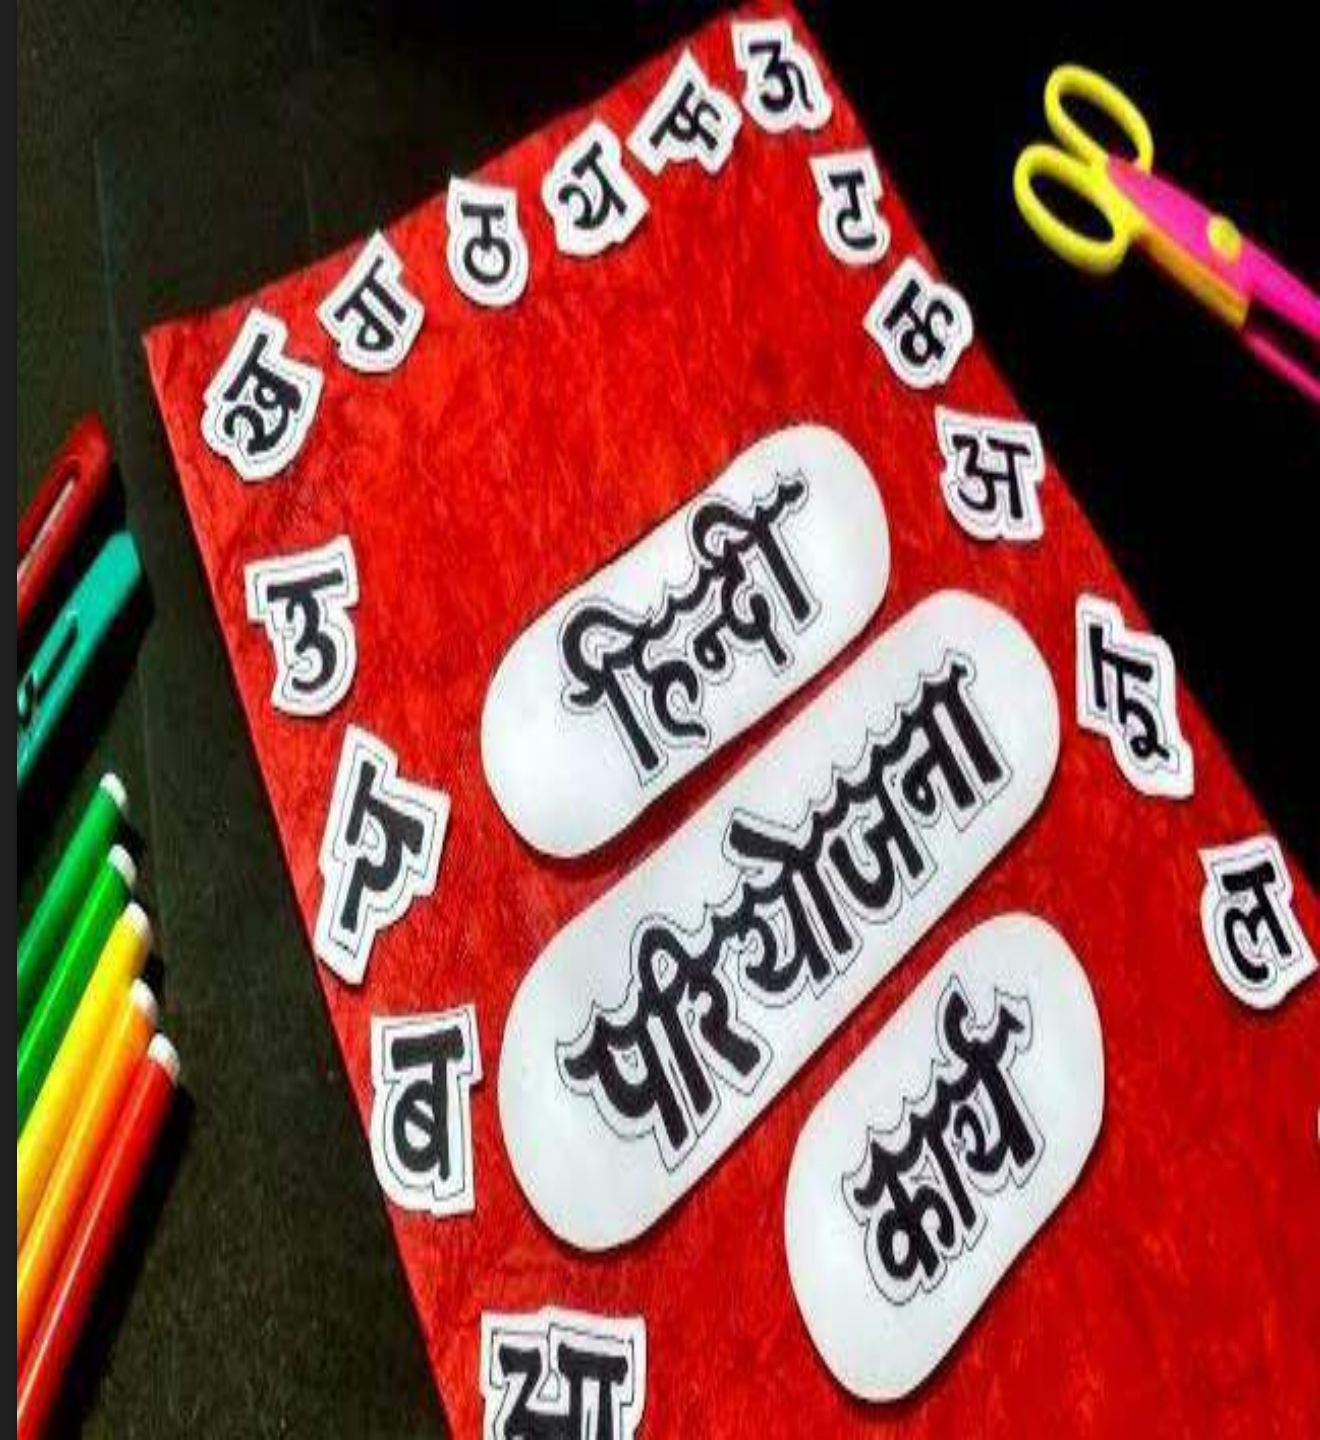 हिन्दी
परियोजना
कार्य
ख ग ठ थ क ऊ
ट
छ
अ
ल
उ
च
ब